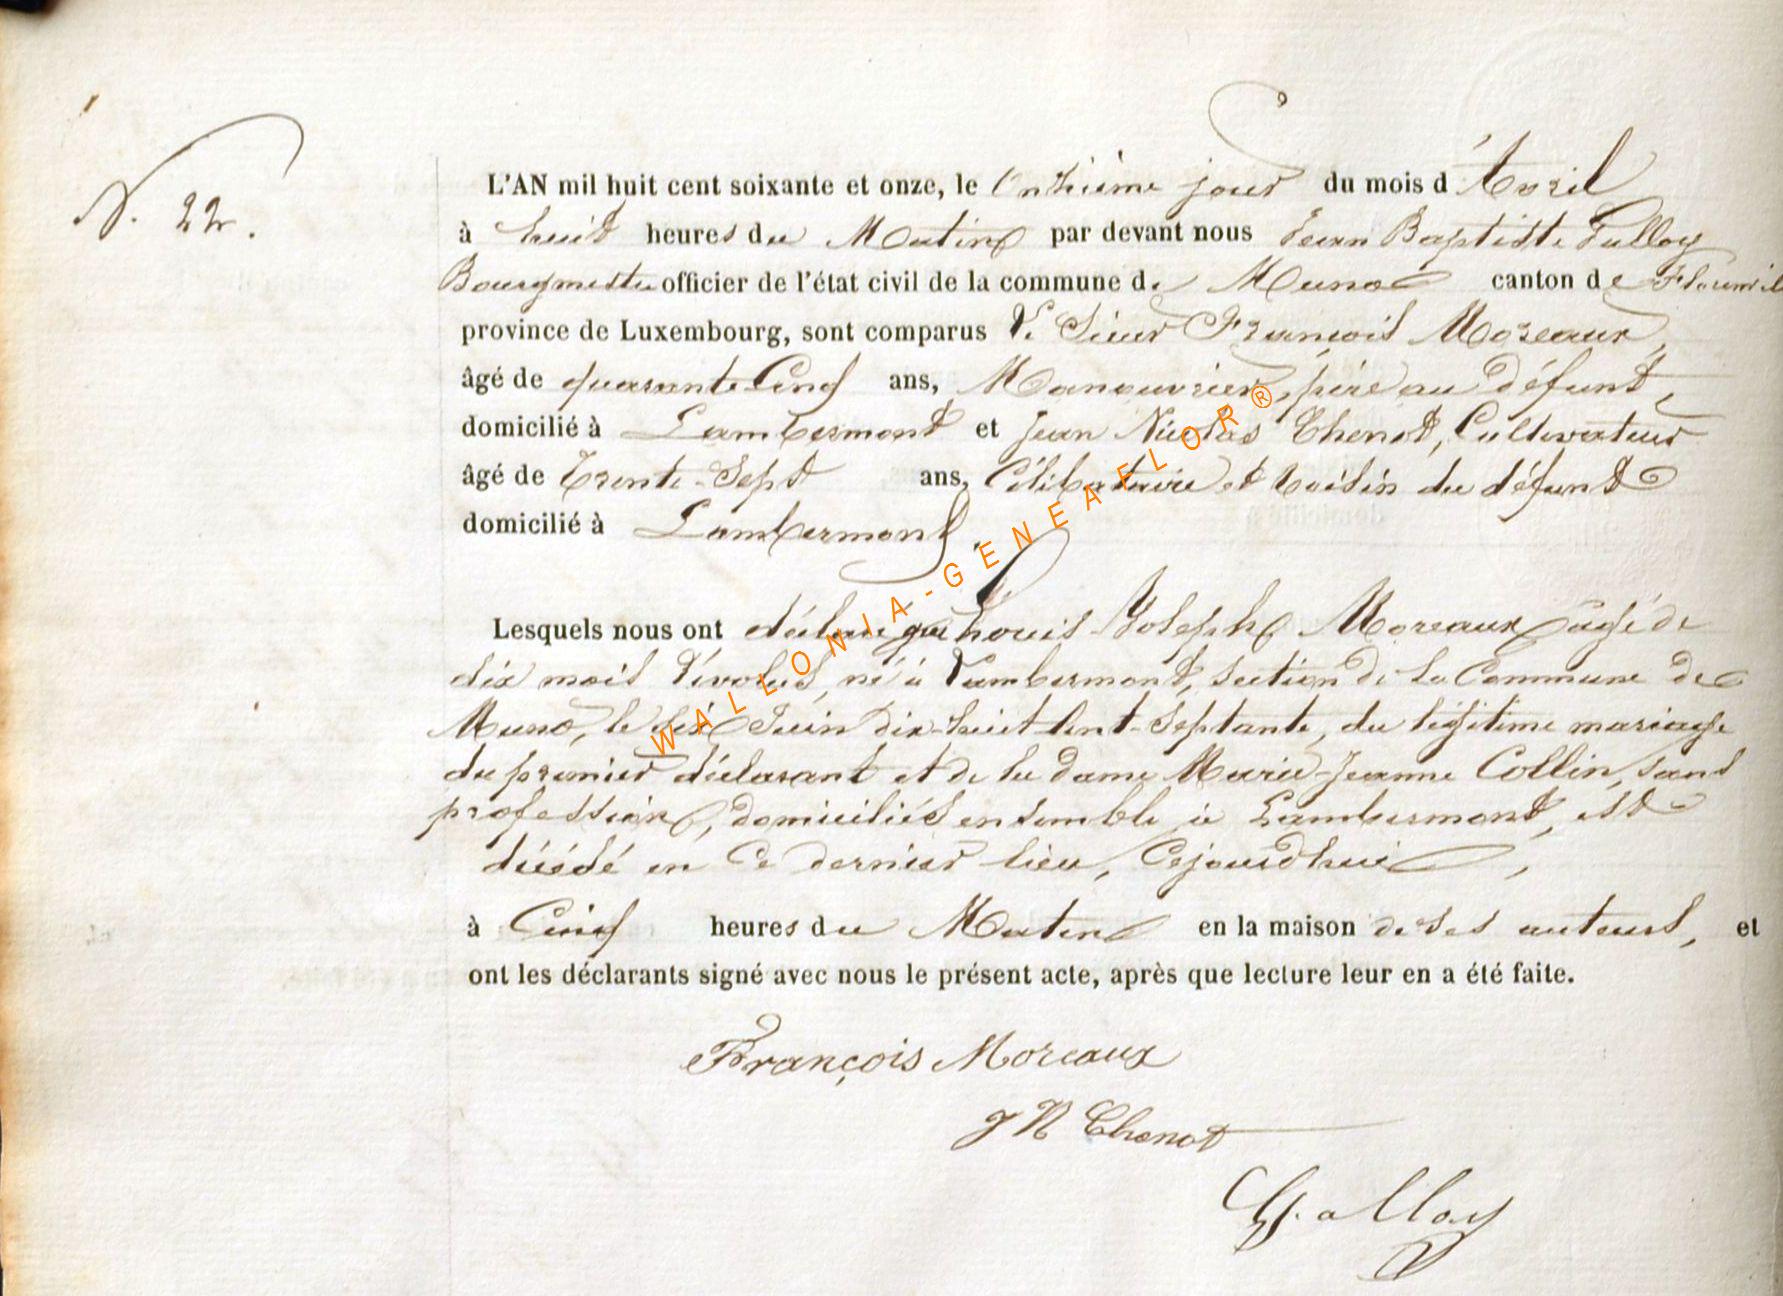 N. 22.
L'AN mil huit cent soixante et onze, le Onzième jour du mois d'Avril
à huit heures du Matin par devant nous Jean Baptiste
Bourgmestre officier de l'état civil de la commune de Muno canton de Florenvil
province de Luxembourg, sont comparus Le Sieur François Moreaux,
âgé de quarante Cinq ans, Manouvrier, père au défunt,
domicilié à Lambermont et Jean Nicolas Thenot, Cultivateur
âgé de Trente-Sept ans, Célibataire et Voisin du défunt
domicilié à Lambermont.
Lesquels nous ont déclaré que Louis Joseph Moreaux, âgé de
dix mois révolus, né à Lambermont, section de la Commune de
Muno, le six Juin dix-huit Cent Septante, du légitime mariage
du premier déclarant et de la dame Marie-Jeanne Collin, sans
profession, domiciliés ensemble à Lambermont, est
décédé en Ce dernier lieu, Cejourdhui,
à Cinq heures du Matin en la maison de ses auteurs, et
ont les déclarants signé avec nous le présent acte, après que lecture leur en a été faite.
François Moreaux
J N Thenot
WALLONIA-GENEAFLOR®